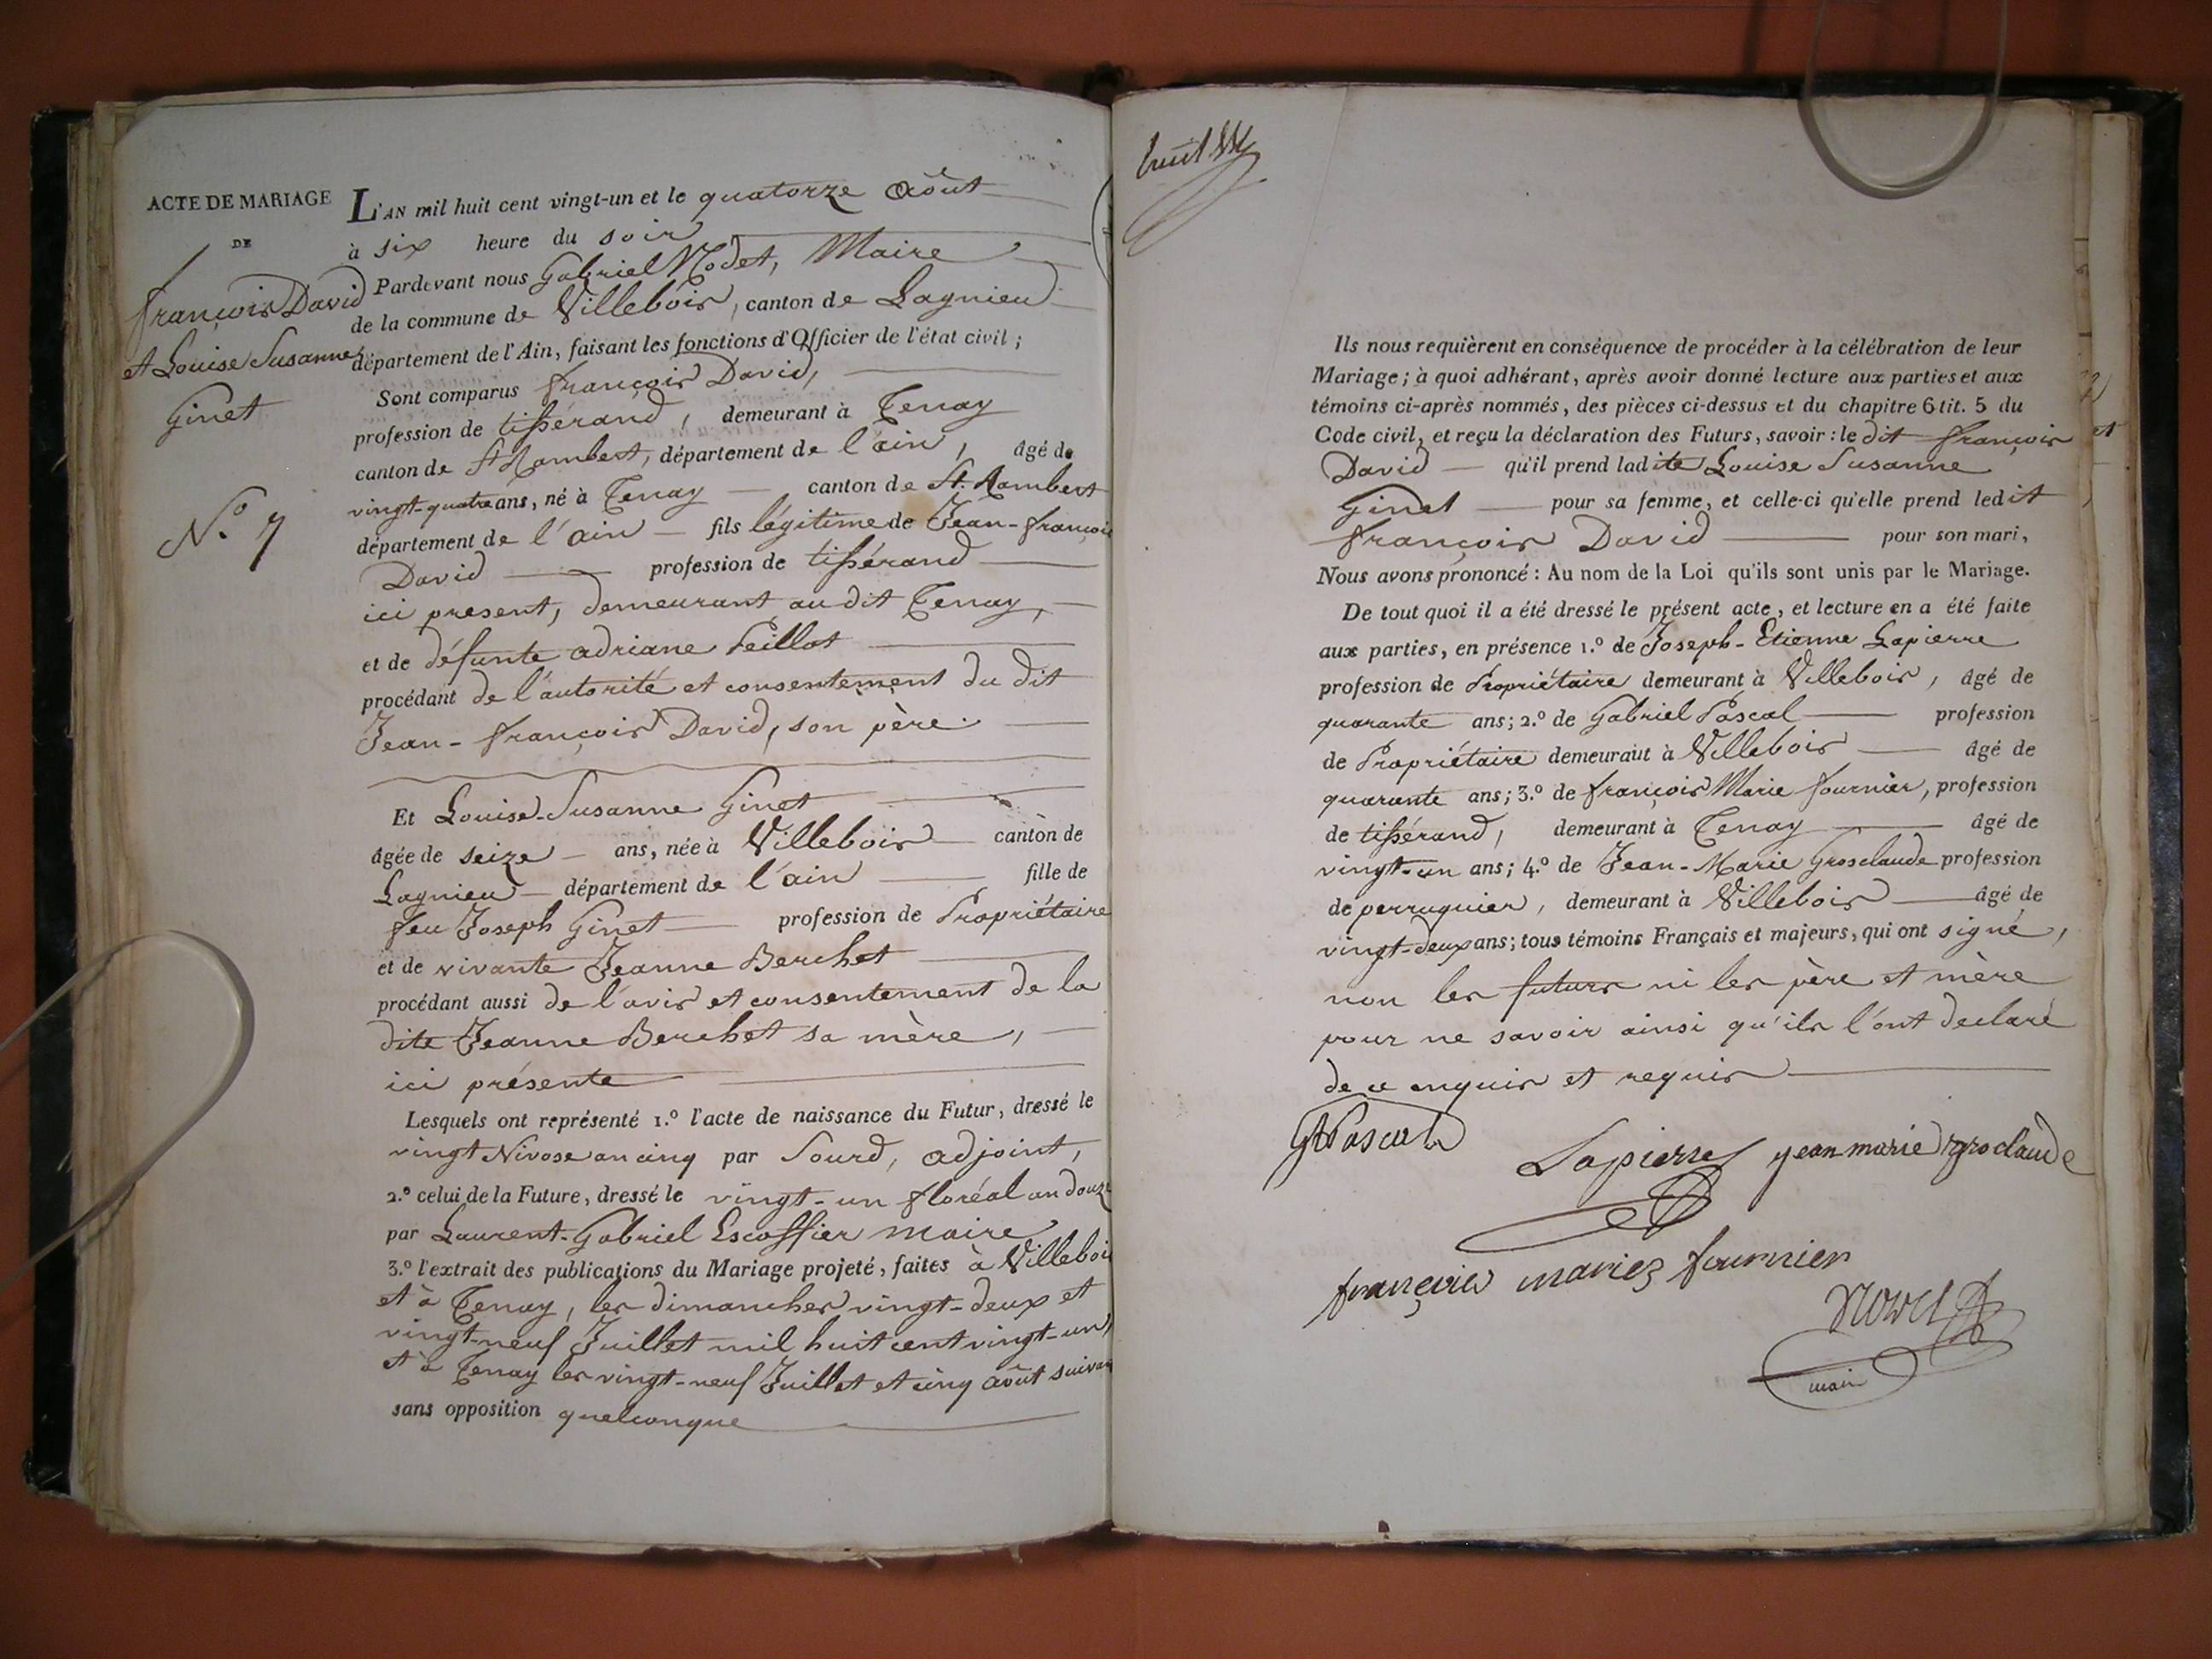 ACTE DE MARIAGE
DE
François David
et Louise Susanne
Ginet
N.° 7
L'AN mil huit cent vingt-un et le quatorze Août
à six heure du soir
Pardevant nous Gabriel Modet, Maire
de la commune de Villebois, canton de Lagnieu
département de l'Ain, faisant les fonctions d'Officier de l'état civil ;
Sont comparus François David,
profession de tissérand, demeurant à Tenay
canton de St Rambert, département de l'ain, âgé de
vingt-quatre ans, né à Tenay canton de St. Rambert
département de l'ain fils légitime de Jean-François
David profession de tissérand
ici present, demeurant au dit Tenay,
et de défunte adriane Peillot
procédant de l'autorité et consentement du dit
Jean-François David, son père.
Et Louise-Susanne Ginet
âgée de seize ans, née à Villebois canton de
Lagnieu département de l'ain fille de
feu Joseph Ginet profession de Propriétaire
et de vivante Jeanne Berchet
procédant aussi de l'avis et consentement de la
dite Jeanne Berchet sa mère,
ici présente
Lesquels ont représenté 1.° l'acte de naissance du Futur, dressé le
vingt Nivose an cinq par Sourd, adjoint,
2.° celui de la Future, dressé le vingt-un floréal an douze
par Laurent-Gabriel Escoffier maire
3.° l'extrait des publications du Mariage projeté, faites à Villebois
et à Tenay, les dimanches vingt-deux et
vingt-neuf Juillet mil huit cent vingt-un,
et à Tenay les vingt-neuf Juillet et cinq août suivan
sans opposition quelconque
Ils nous requièrent en conséquence de procéder à la célébration de leur
Mariage ; à quoi adhérant, après avoir donné lecture aux parties et aux
témoins ci-après nommés, des pièces ci-dessus et du chapitre 6 tit. 5 du
Code civil, et reçu la déclaration des Futurs, savoir : le dit François
David qu'il prend ladite Louise Susanne
Ginet pour sa femme, et celle-ci qu'elle prend ledit
François David pour son mari,
Nous avons prononcé : Au nom de la Loi qu'ils sont unis par le Mariage.
De tout quoi il a été dressé le présent acte, et lecture en a été faite
aux parties, en présence 1.° de Joseph-Etienne Lapierre
profession de Propriétaire demeurant à Villebois, âgé de
quarante ans ; 2.° de Gabriel Pascal profession
de Propriétaire demeurant à Villebois âgé de
quarante ans ; 3.° de François Marie Fournier, profession
de tissérand, demeurant à Tenay âgé de
vingt-un ans ; 4.° de Jean-Marie Grosclaude profession
de perruquier, demeurant à Villebois âgé de
vingt-deux ans ; tous témoins Français et majeurs, qui ont signé,
non les futurs ni les père et mère
pour ne savoir ainsi qu'ils l'ont declaré
de ce enquis et requis
Gl Pascal
Lapierre jean marie groclaude
françois marie fournier
maire